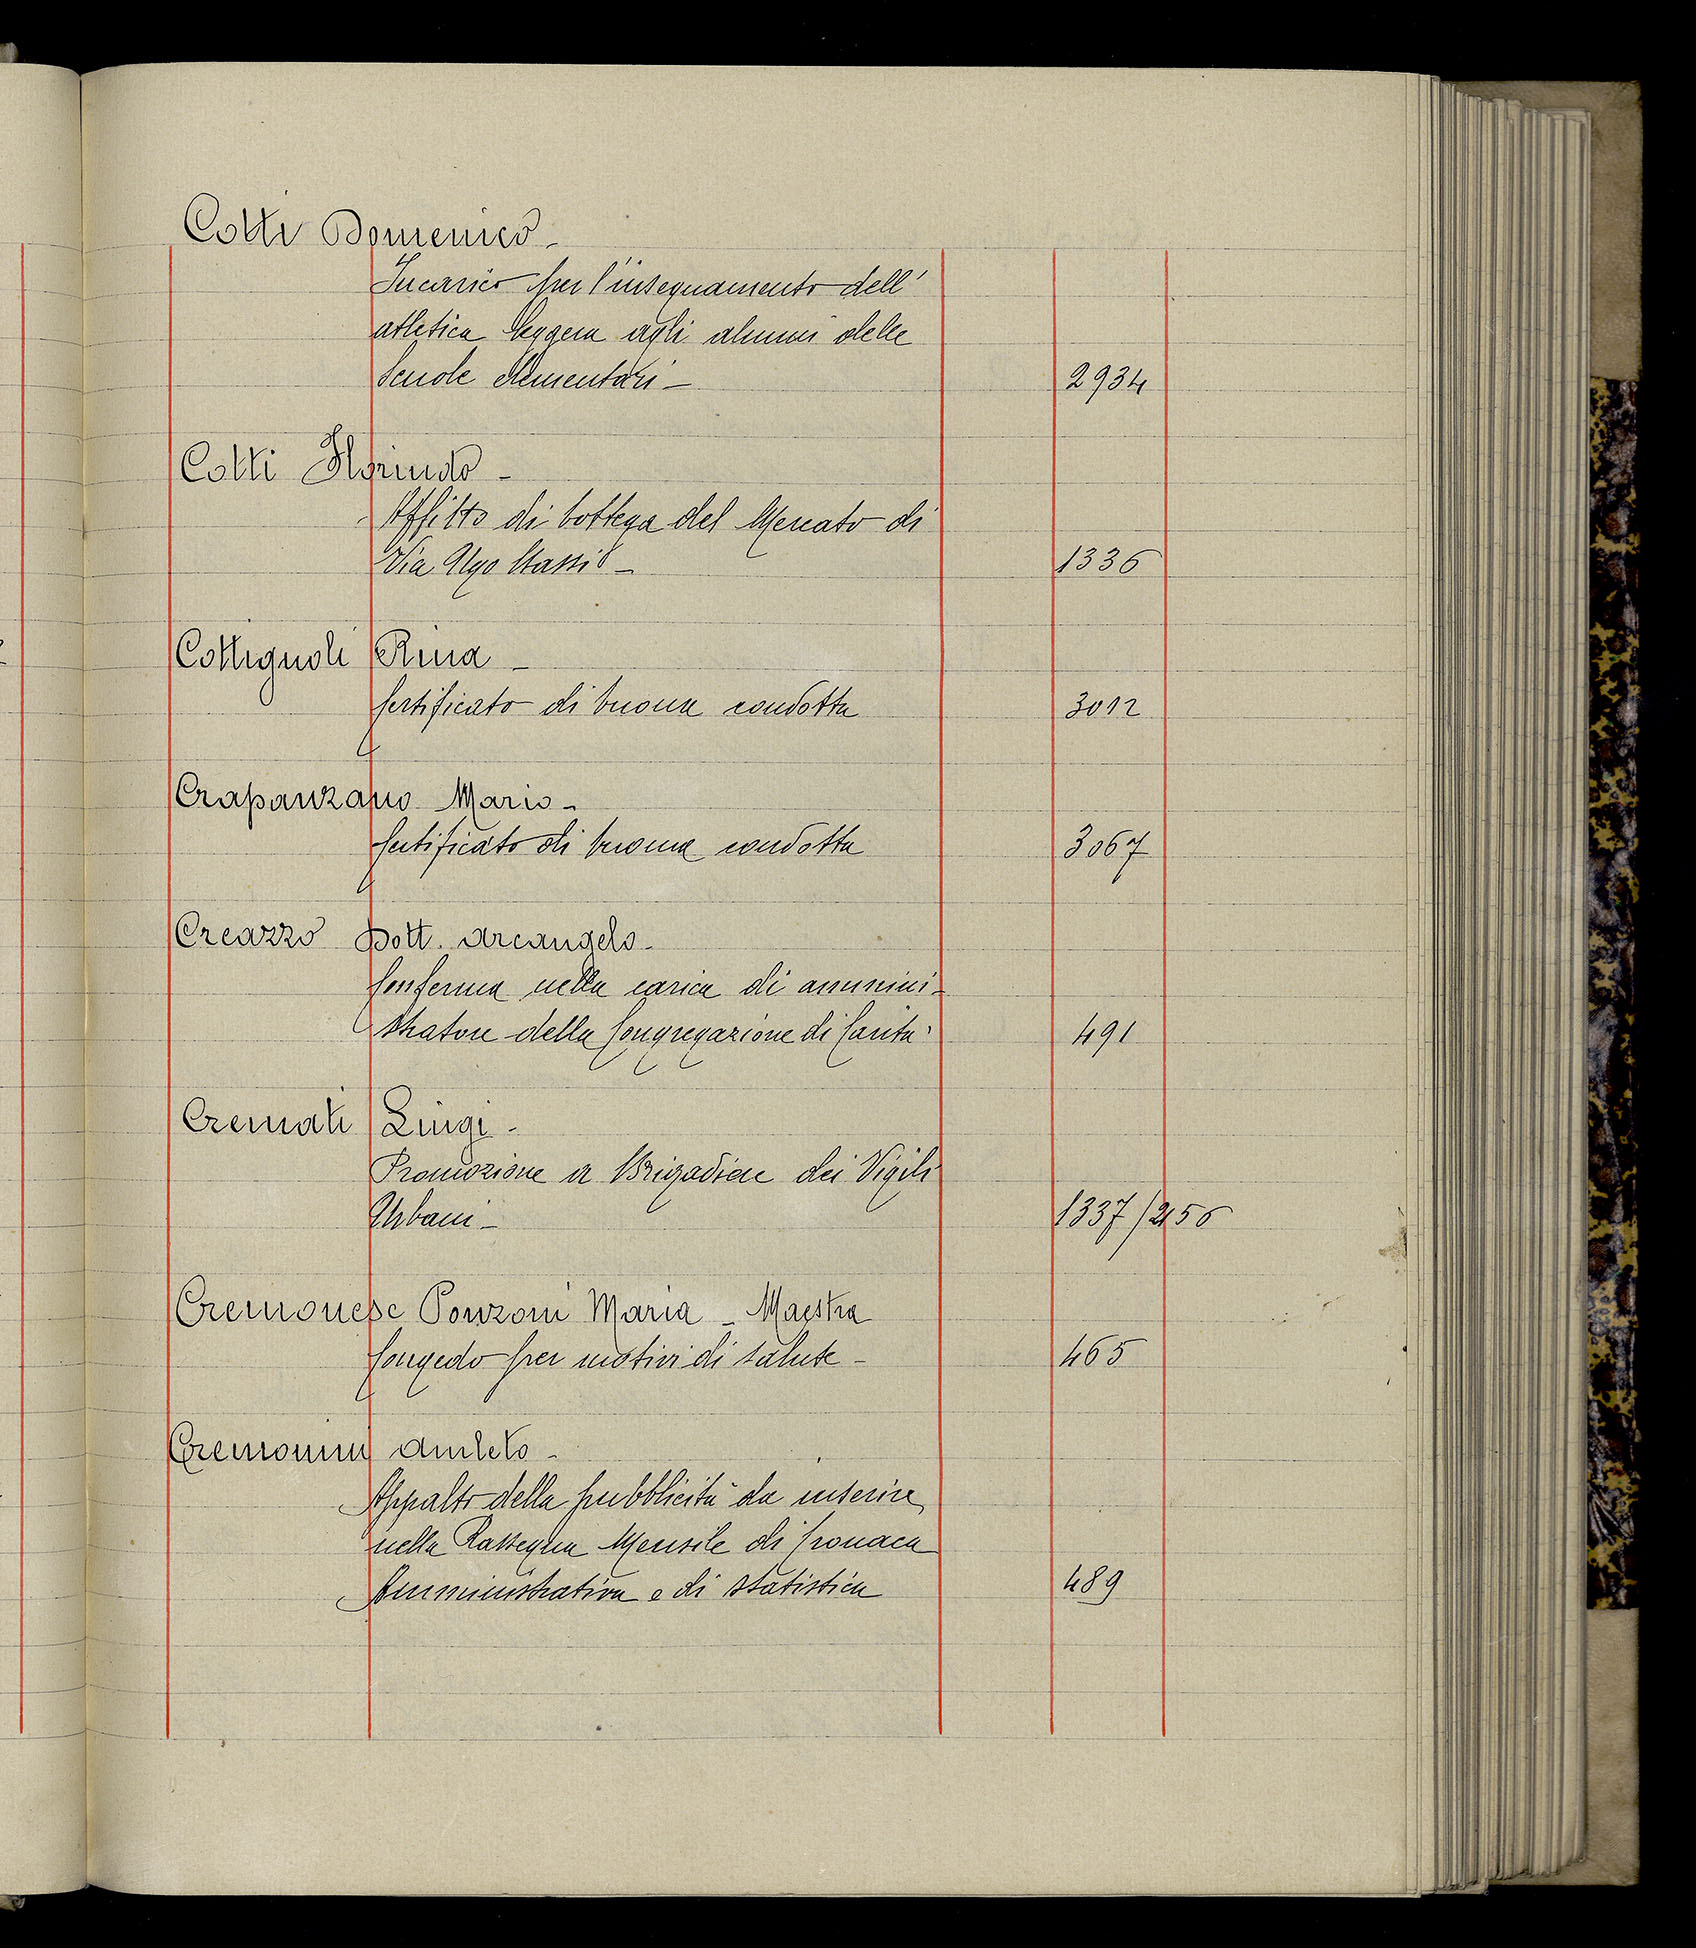 Cotti Domenico -
Incarico per l'insegnamento dell'
atletica leggera agli alunni delle
Scuole elementari - 2934
Cotti Florindo -
Affitto di bottega del Mercato di
Via Ugo Bassi - 1336
Cottignoli Rina -
Certificato di buona condotta 3012
Crapanzano Mario -
Certificato di buona condotta 3067
Creazzo Dott. Arcangelo -
Conferma nella carica di ammini-
stratore della Congregazione di Carità 491
Cremati Luigi -
Promozione a Brigadiere dei Vigili
Urbani - 1337/2150
Cremonese Ponzoni Maria - Maestra
Congedo per motivi di salute - 465
Cremonini Amleto -
Appalto della pubblicità da inserire
nella Rassegna Mensile di Cronaca
Amministrativa e di statistica 489